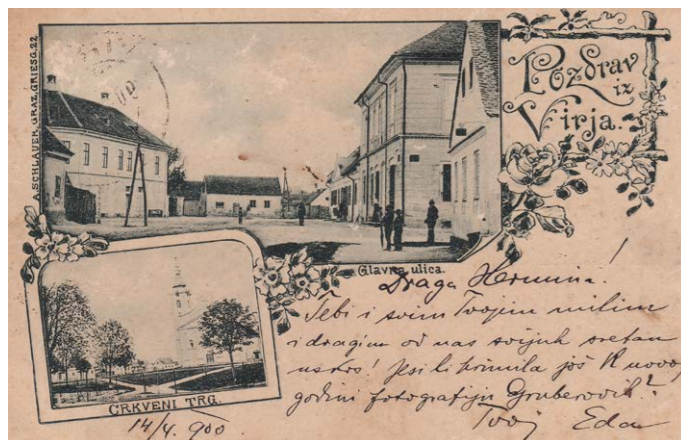 A. SCHLAUER, GRAZ, GRIESG. 22.
Pozdrav
iz
Virja.
Glavna ulica.
CRKVENI TRG.
Draga Hermina!
Tebi i svim Tvojim milim
i dragim od nas svijuh sretan
uskrs! Jesi li primila još k novoj
godini fotografiju Gruberovih?
Tvoj Edo
14/4. 900